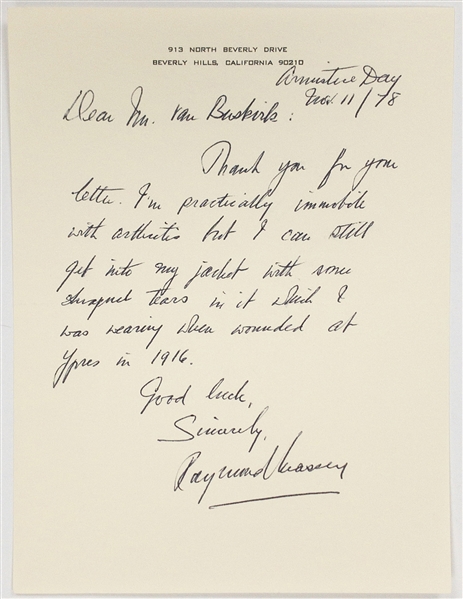 913 NORTH BEVERLY DRIVE
BEVERLY HILLS, CALIFORNIA 90210
Armistice Day
Nov. 11/78
Dear Mr. Van Buskirk:
Thank you for your
letter. I'm practically immobile
with arthritis but I can still
get into my jacket with some
shrapnel tears in it which I
was wearing when wounded at
Ypres in 1916.
Good luck,
Sincerely,
Raymond Massey